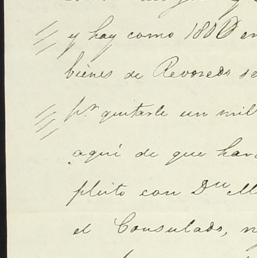 y hay como 1800 en
bienes de Revoredo se
pª quitarle un mil
aquí de que han
pleito con Dn M
el Consulado, n